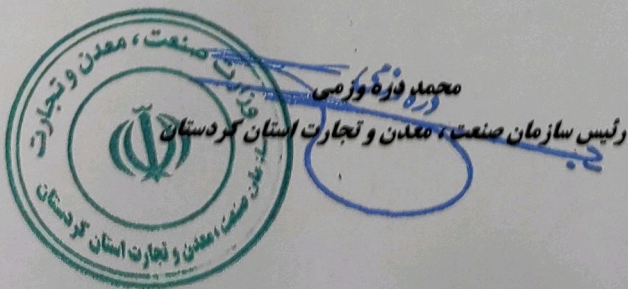 محمد دره وزمی
رئیس سازمان صنعت ، معدن و تجارت استان کردستان
وزارت صنعت ، معدن و تجارت
سازمان صنعت ، معدن و تجارت استان کردستان